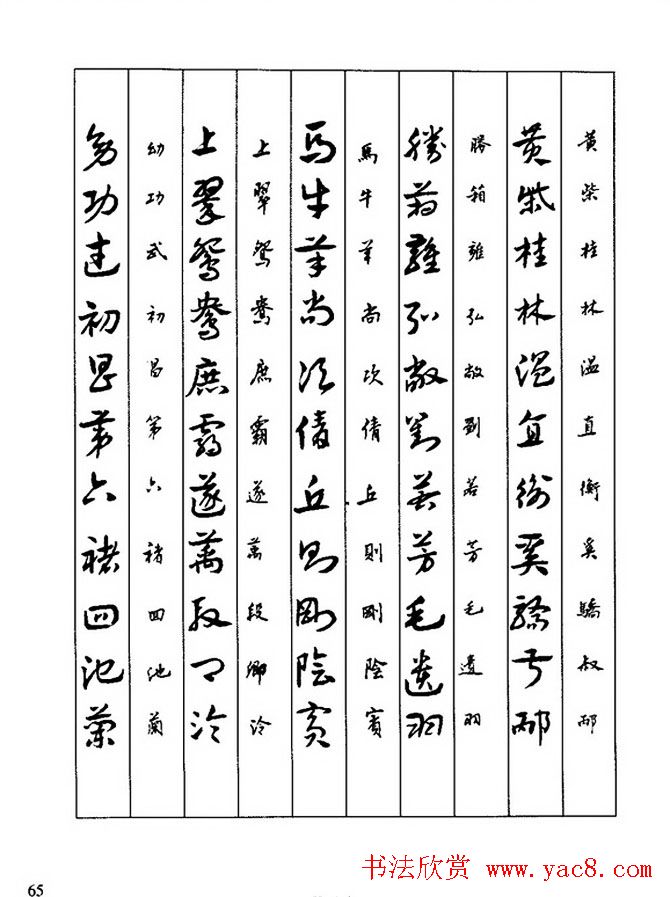 黃柴桂林溫直衡奚驕叔邴
黃柴桂林溫直衡奚驕叔邴
勝箱雍弘敖劉若芳毛遺羽
勝箱雍弘敖劉若芳毛遺羽
馬牛羊尚次倩丘則剛陰賓
馬牛羊尚次倩丘則剛陰賓
上翠鴛鴦庶霸遂萬段卿泠
上翠鴛鴦庶霸遂萬段卿泠
幼功武初昌第六褚四池蘭
幼功武初昌第六褚四池蘭
65
书法欣赏 www.yac8.com